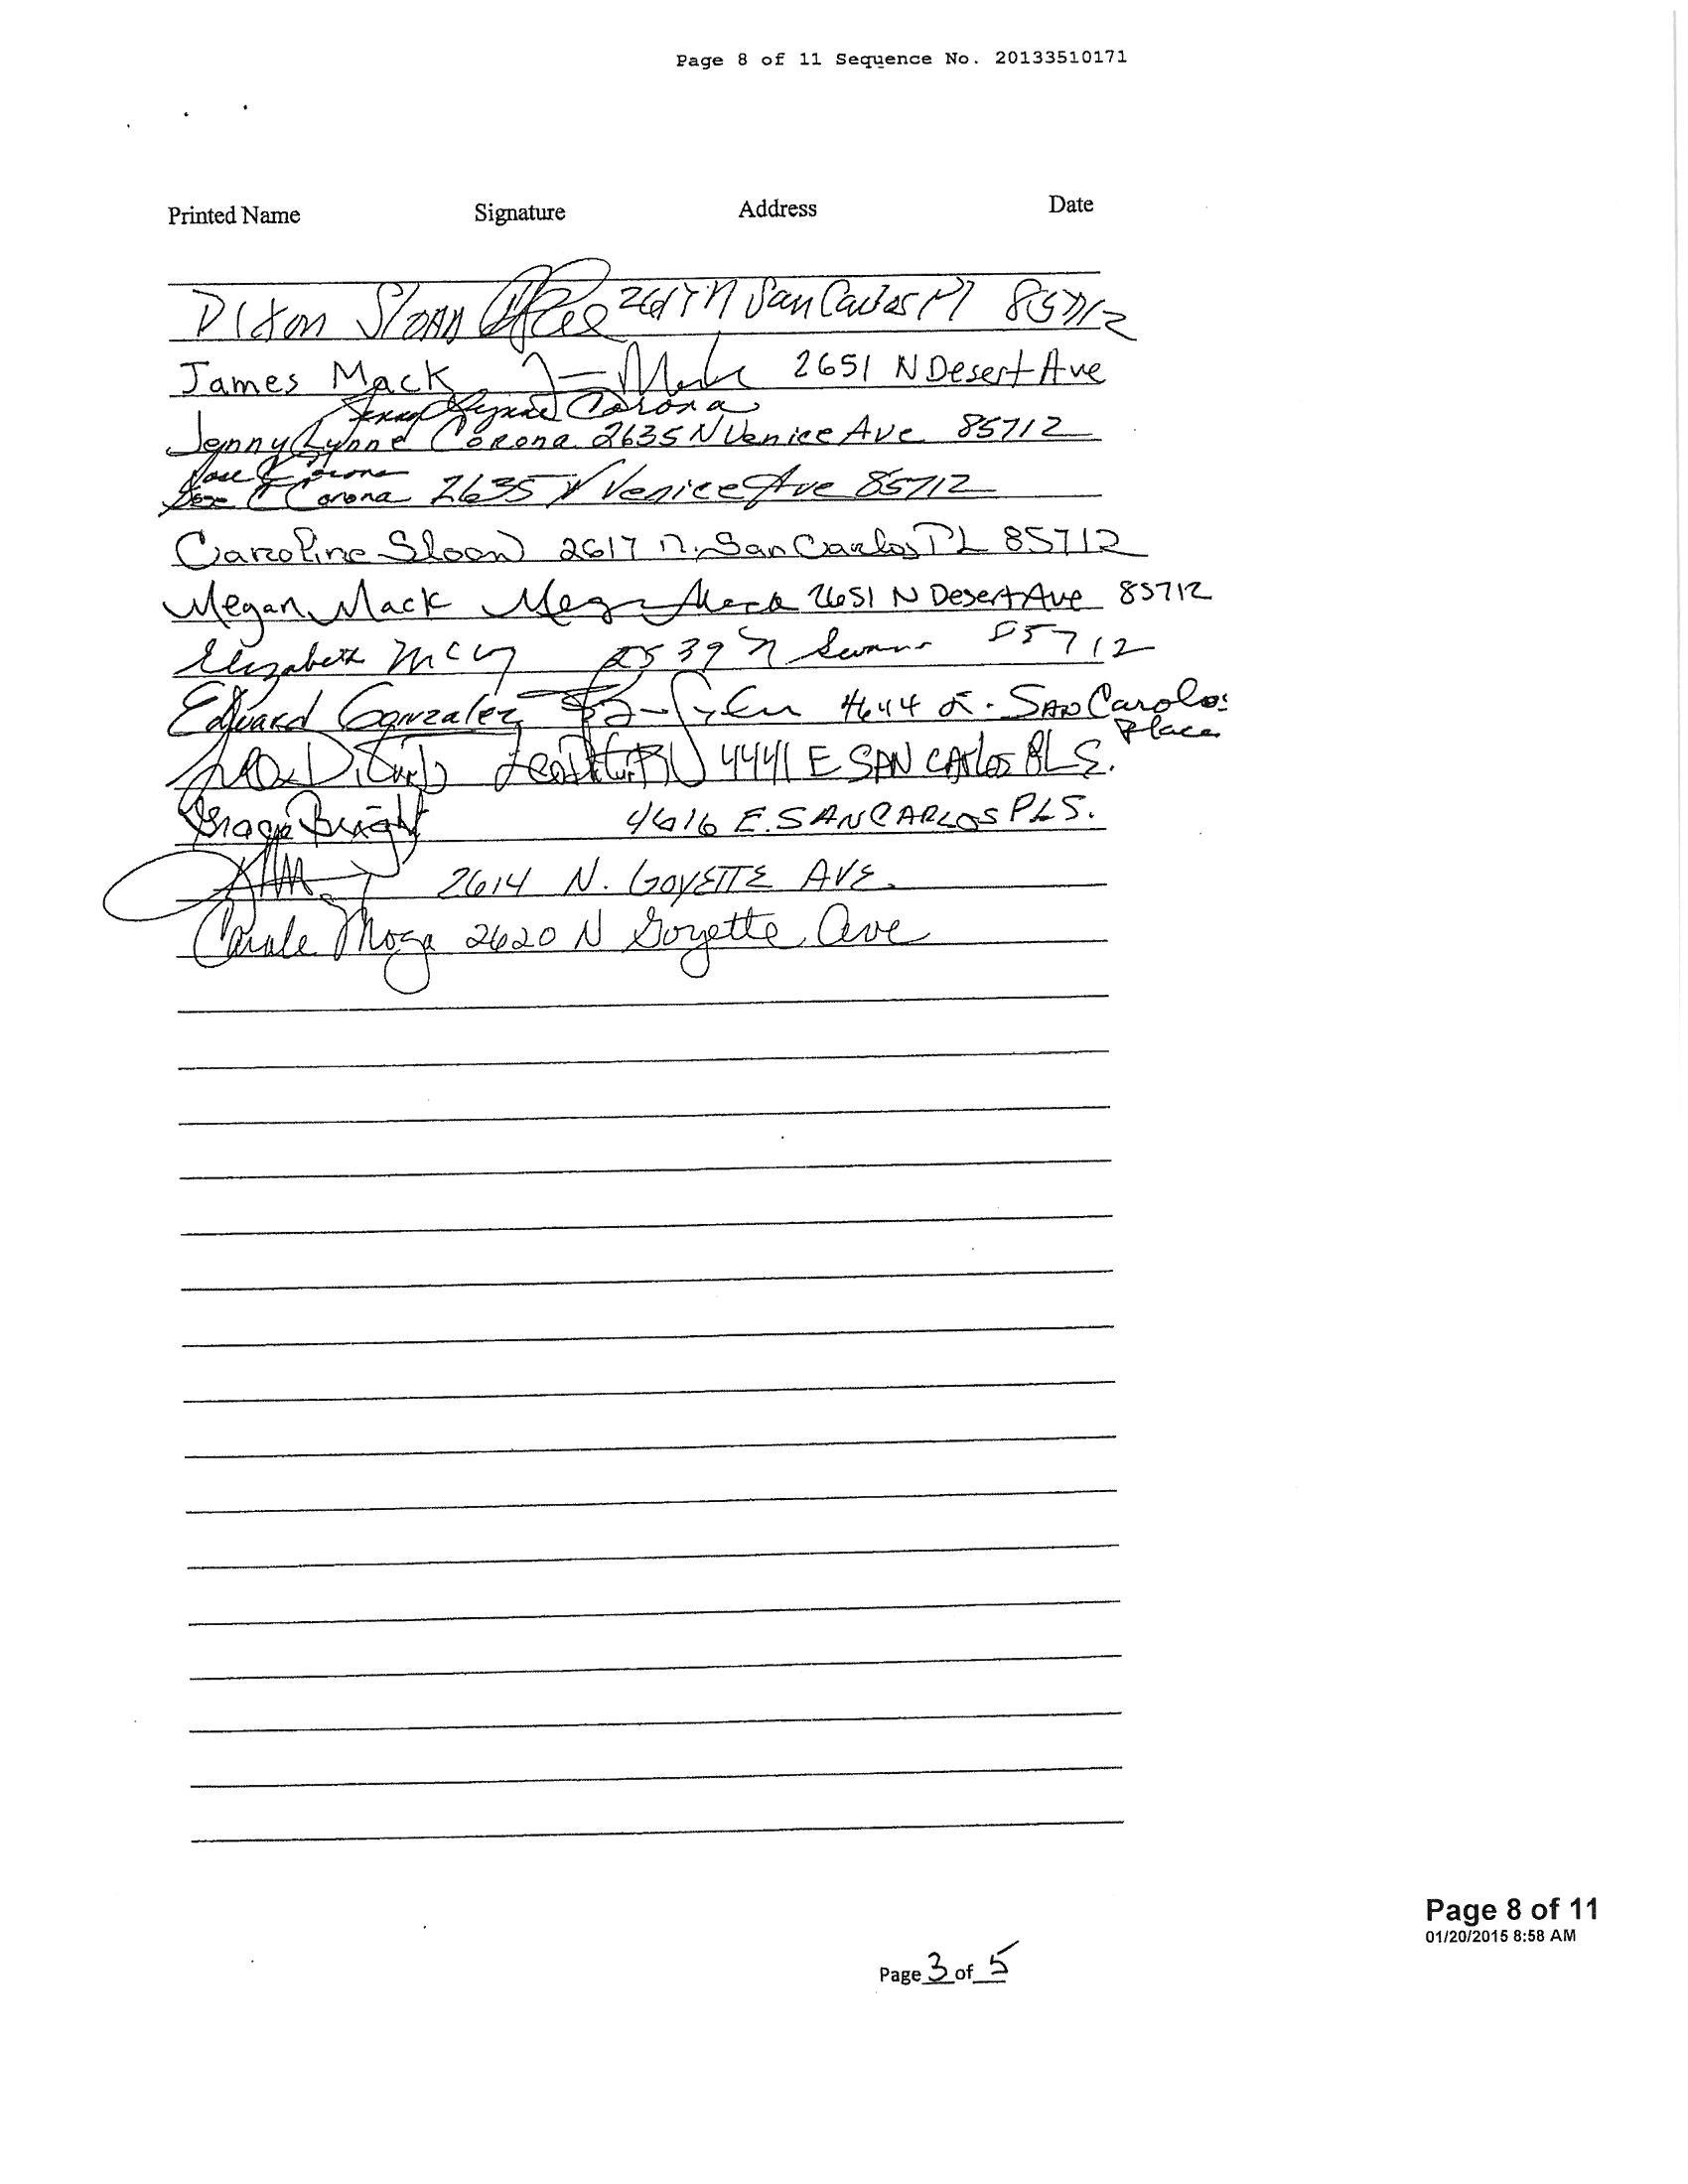 Page 8 of 11 Sequence No. 20133510171
Printed Name Signature Address Date
Dixon Sloan San Carlos Pl 85712
James Mack 2651 N Desert Ave
Jenny Lynne Corona
Jenny Lynne Corona 2635 N Venice Ave 85712
Jose C Corona
Jose C Corona 2635 N Venice Ave 85712
Caroline Sloan 2617 N. San Carlos PL 85712
Megan Mack Megan Mack 2651 N Desert Ave 85712
Elizabeth 2539 N 85712
Eduard Gonzalez 4644 E. San Carolos
Place
4441 E SAN CARLOS PLS.
Bright 4616 E. SAN CARLOS PLS.
2614 N. GOYETTE AVE.
Carole Moga 2620 N Goyette Ave
Page 8 of 11
01/20/2015 8:58 AM
Page 3 of 5